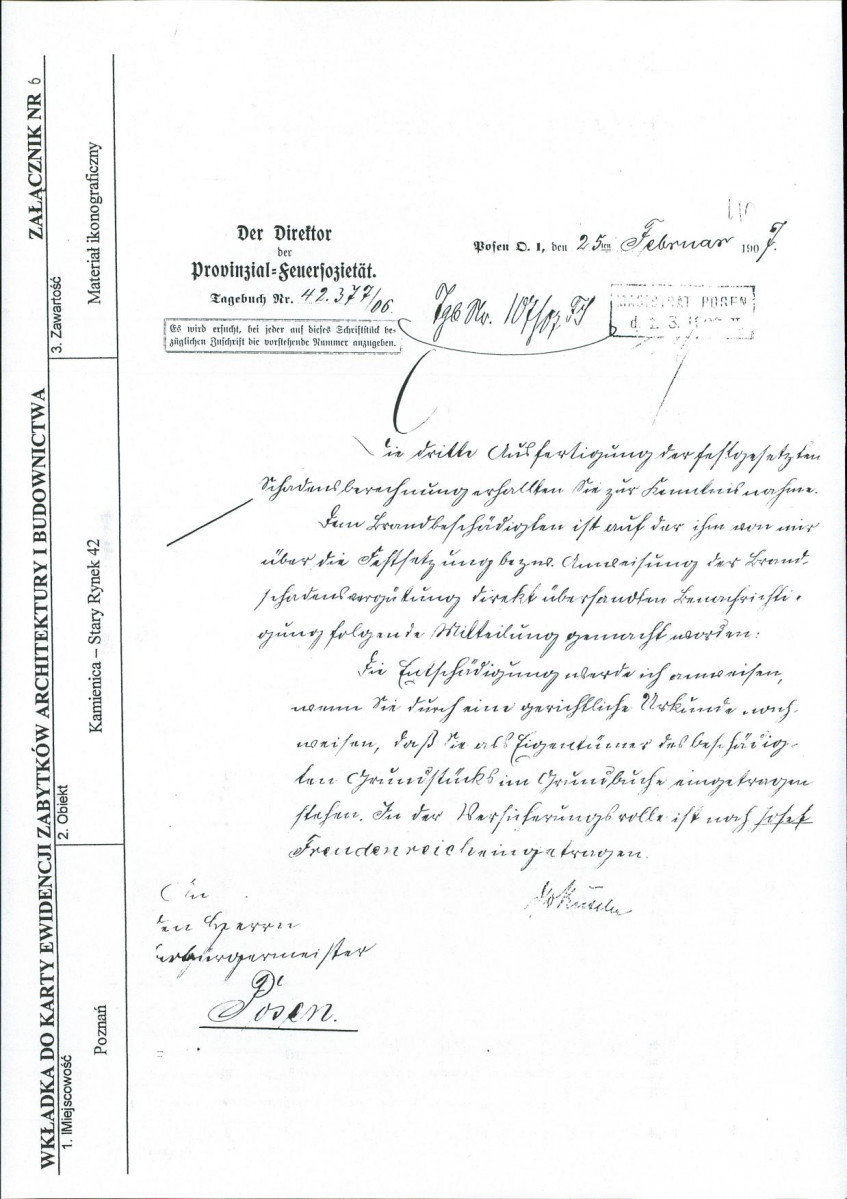 WKŁADKA DO KARTY EWIDENCJI ZABYTKÓW ARCHITEKTURY I BUDOWNICTWA ZAŁĄCZNIK NR 6
1. lMiejscowość
Poznań
2. Obiekt
Kamienica – Stary Rynek 42
3. Zawartość
Materiał ikonograficzny
Der Direktor
der
Provinzial=Feuersozietät.
Tagebuch Nr. 42.377/06.
Es wird ersucht, bei jeder auf dieses Schriftstück be-
züglichen Zuschrift die vorstehende Nummer anzugeben.
Posen O. 1, den 25ten Februar 1907.
Tgb Nr. 107/07
MAGISTRAT POSEN
Die dritte Ausfertigung der festgesetzten
Schadensberechnung erhalten Sie zur Kenntnisnahme.
Dem Brandbeschädigten ist auf der ihm von mir
über die Festsetzung bezw. Anweisung der Brand-
schadensvergütung direkt übersandten Benachrichti-
gung folgende Mitteilung gemacht worden:
Die Entschädigung werde ich anweisen,
wenn Sie durch eine gerichtliche Urkunde nach-
weisen, daß Sie als Eigentümer des beschädig-
ten Grundstücks im Grundbuche eingetragen
stehen. In der Versicherungsrolle ist noch Josef
Freudenreich eingetragen.
An
den Herrn
Oberbürgermeister
Posen.